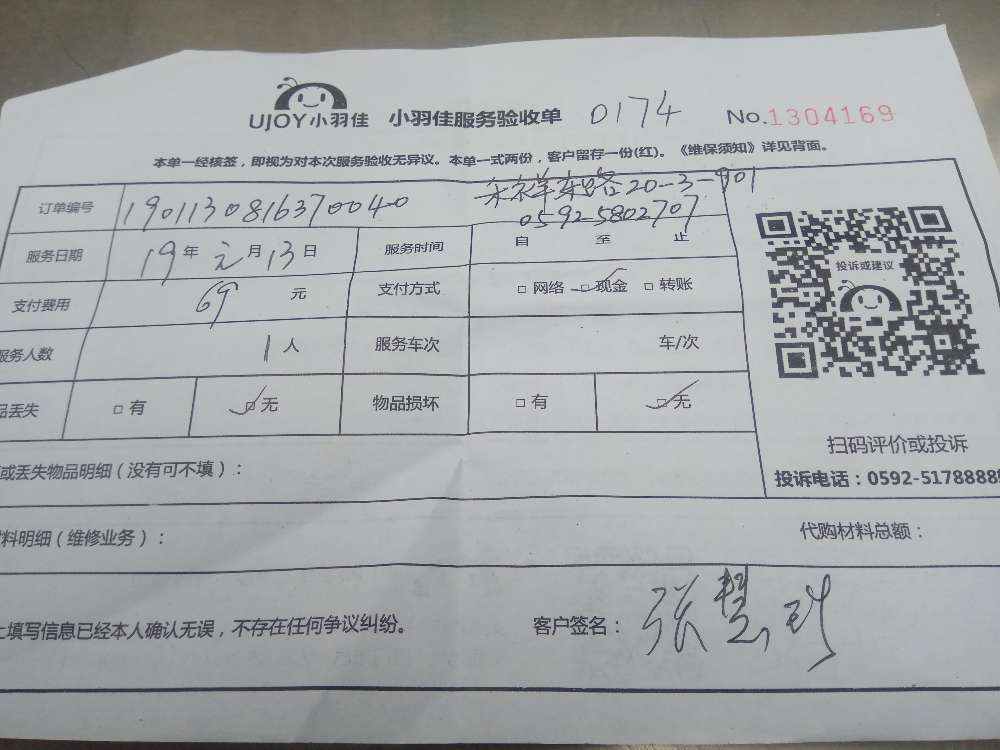 UJOY小羽佳 小羽佳服务验收单 0174 No.1304169
本单一经核签，即视为对本次服务验收无异议。本单一式两份，客户留存一份(红)。《维保须知》详见背面。
订单编号 1901130816370040 东路20-3-901
0592-5802707
服务日期 19年元月13日 服务时间 自 至 止
投诉或建议
支付费用 69 元 支付方式 □ 网络 ☑ 现金 □ 转账
服务人数 1 人 服务车次 车/次
品丢失 □ 有 ☑ 无 物品损坏 □ 有 ☑ 无
扫码评价或投诉
或丢失物品明细（没有可不填）：
投诉电话：0592-5178888
料明细（维修业务）： 代购材料总额：
上填写信息已经本人确认无误，不存在任何争议纠纷。 客户签名： 张慧